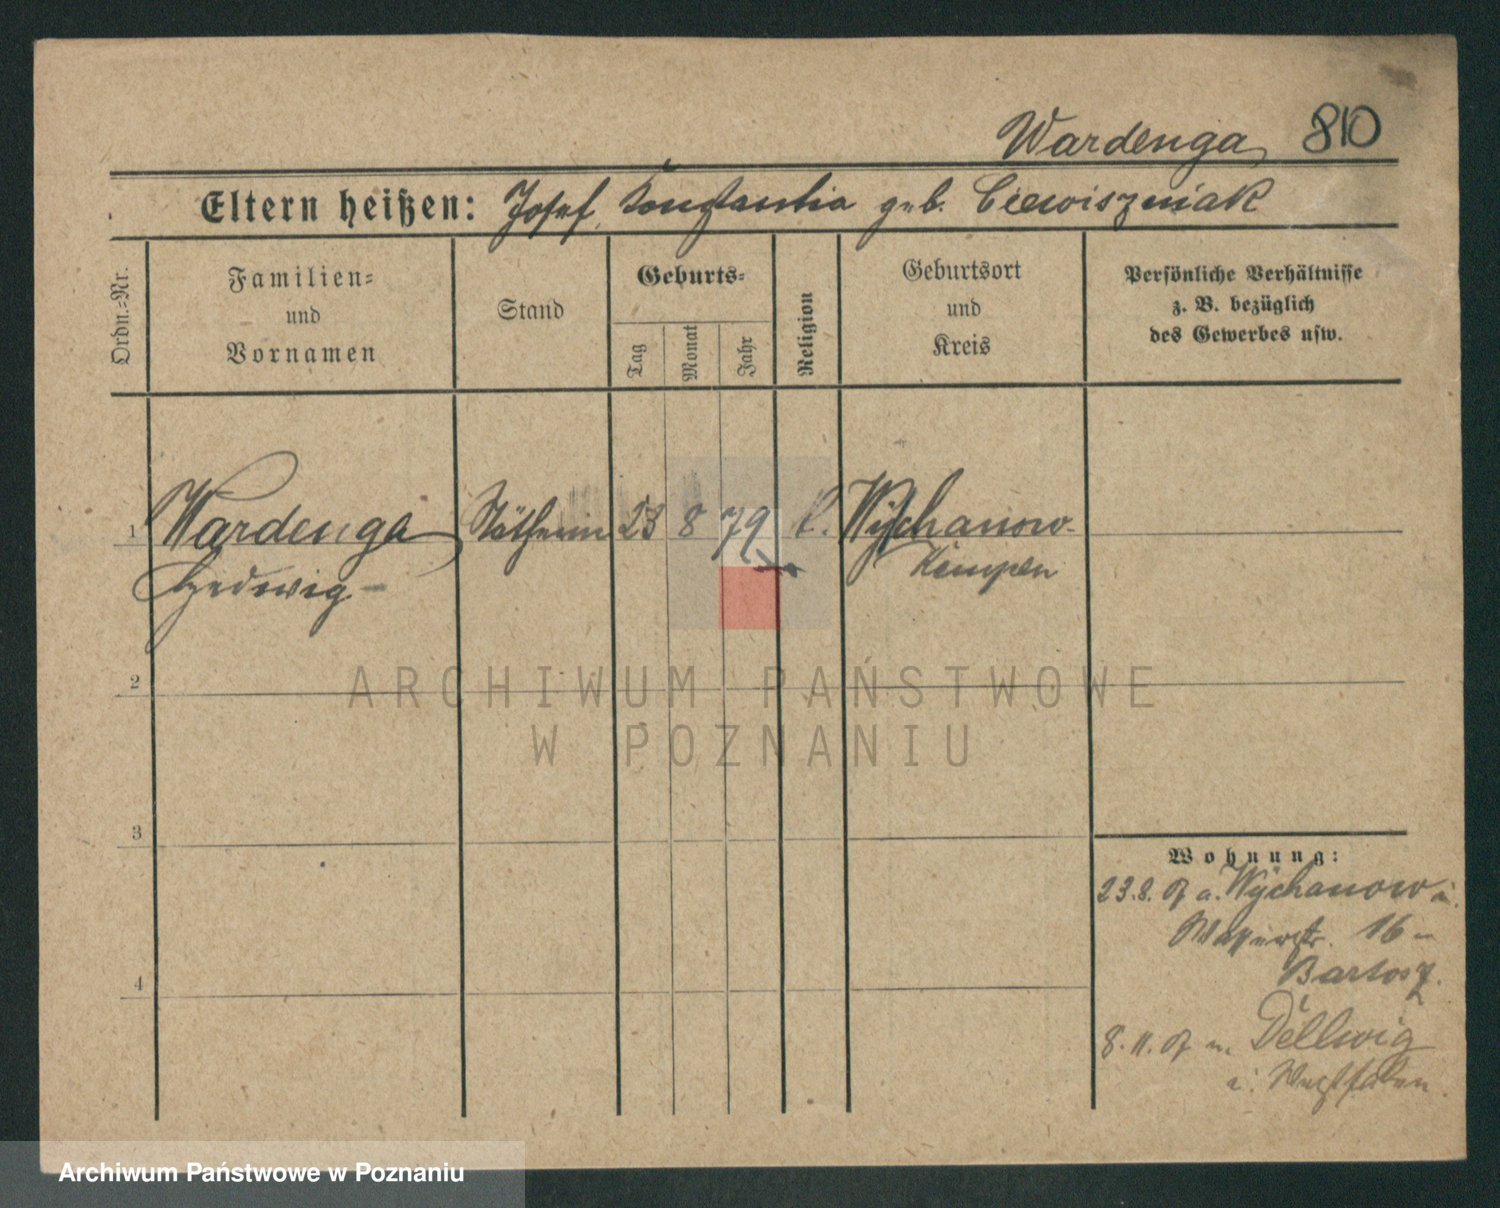 Wardenga 810
Eltern heißen: Josef, Konstantia geb. Ciewiszniak
Ordn.-Nr.
Familien-
und
Vornamen
Stand
Geburts-
Tag
Monat
Jahr
Religion
Geburtsort
und
Kreis
Persönliche Verhältnisse
z. B. bezüglich
des Gewerbes usw.
1 Wardenga Nätherin 23 8 79 k. Wychanow
Hedwig Kempen
2
3
4
Wohnung:
23.8. 07 a. Wychanow
16
Bartosz.
8. 11. 07 n. Dellwig
i. Westfalen
ARCHIWUM PAŃSTWOWE
W POZNANIU
Archiwum Państwowe w Poznaniu